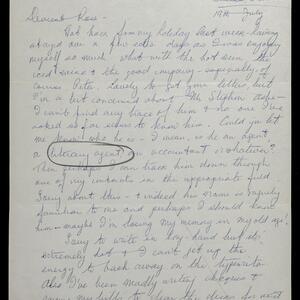 19th July
Dearest Rose -
Got back from my holiday last week - having
stayed on a few extra days as I was enjoying
myself so much what with the hot sun, the
iced wines & the good company - especially of
course Peter. Lovely to get your letters, but
I'm a bit concerned about the Stephen
I can't find any trace of him & no one I've
asked so far seems to know him. Could you let
me know who he is - I mean, is he an agent
a literary agent, an accountant or whatever?
Then perhaps I can track him down through
one of my contacts in the appropriate field.
Sorry about this - & indeed his name is vaguely
familiar to me and perhaps I should know
him - maybe I'm losing my memory in my old age!
Sorry to write in long-hand but it's
extremely hot & I can't get up the
energy to bash away on the typewriter.
Also I've been madly writing cheques &